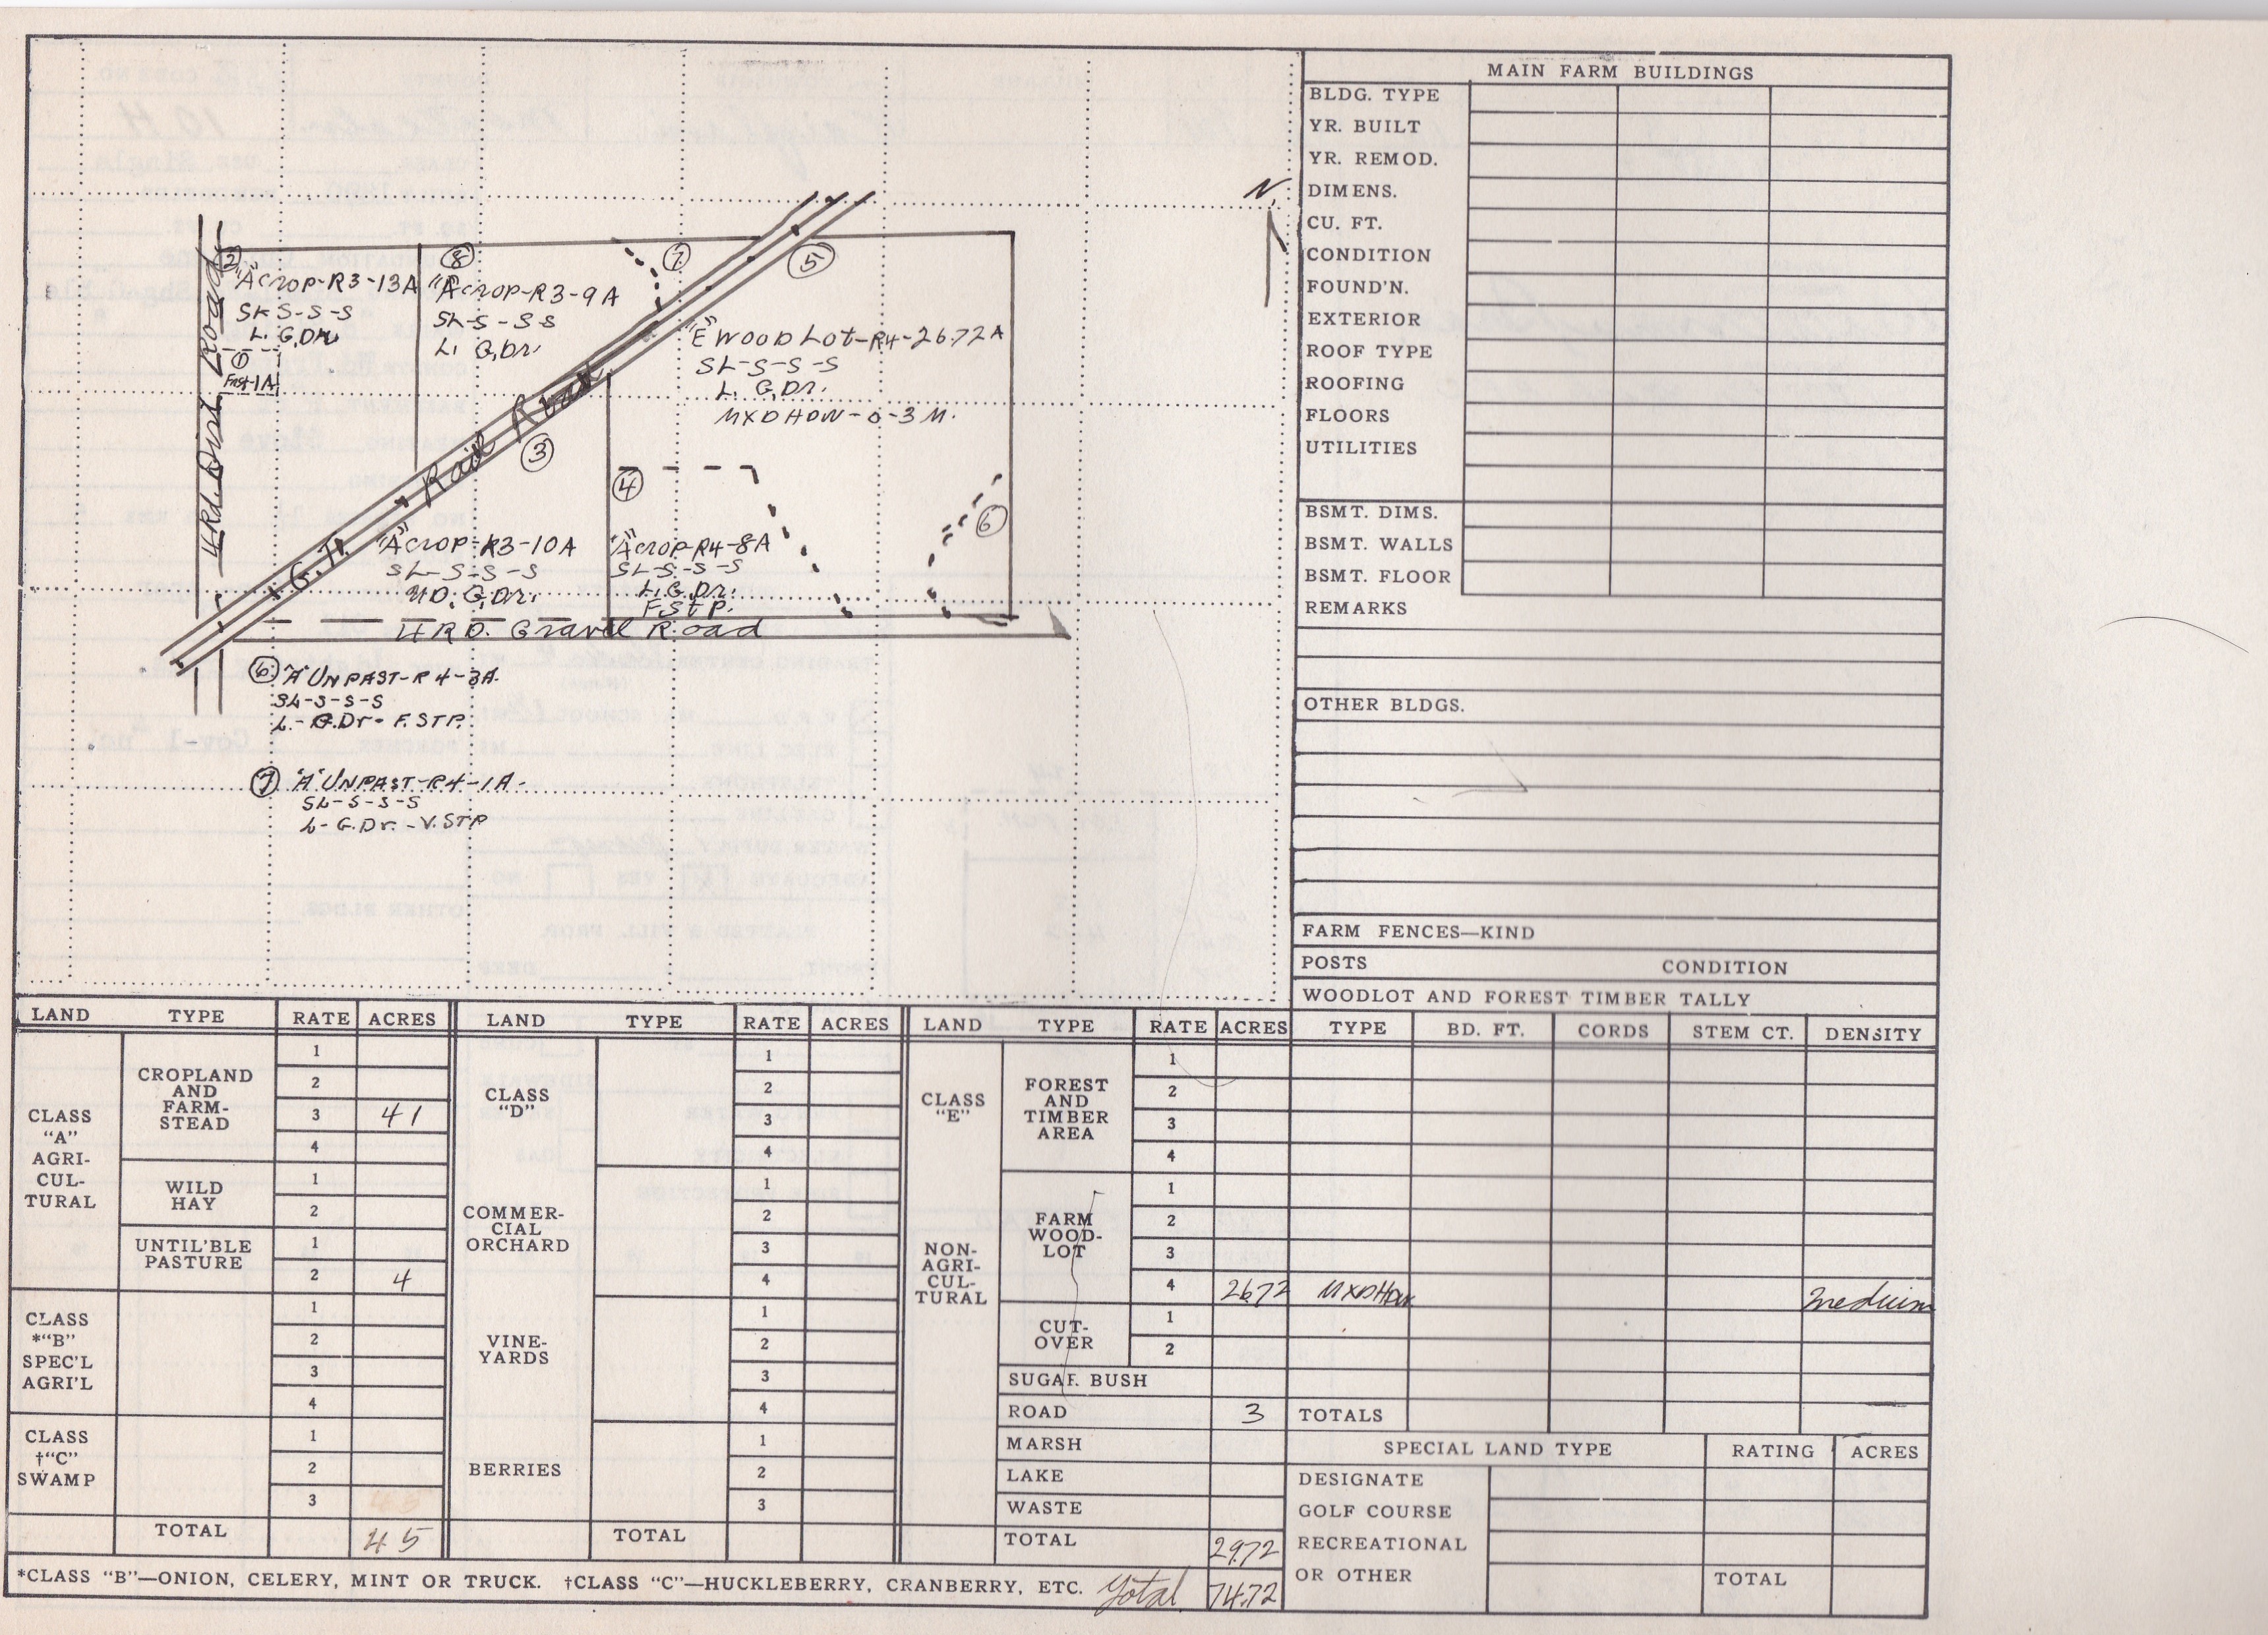 N.
② ⑧ ⑦ ⑤
"A" CROP-R3-13A
SL-S-S-S
L. G. DR.
①
Fmst-1A
"A" CROP-R3-9A
SL-S-S-S
L. G, Dr.
"E" WOOD LOT-R4-26.72A
SL-S-S-S
L. G, Dr.
MXD HDW-0-3 M.
4 Rd. Dirt Road
G. T. Rail Road
③
④
⑥
"A" CROP-R3-10A
SL-S-S-S
UD. G, Dr.
"A" CROP-R4-8A
SL-S-S-S
L. G. Dr.
F. St P.
4 RD. Gravel Road
⑥ "A" UNPAST-R4-3A.
SL-S-S-S
L-G.Dr-F.STP.
⑦ "A" UNPAST-R4-1A-
SL-S-S-S
L-G.Dr.-V.STP
MAIN FARM BUILDINGS
BLDG. TYPE
YR. BUILT
YR. REMOD.
DIMENS.
CU. FT.
CONDITION
FOUND'N.
EXTERIOR
ROOF TYPE
ROOFING
FLOORS
UTILITIES
BSMT. DIMS.
BSMT. WALLS
BSMT. FLOOR
REMARKS
OTHER BLDGS.
FARM FENCES—KIND
POSTS CONDITION
WOODLOT AND FOREST TIMBER TALLY
TYPE BD. FT. CORDS STEM CT. DENSITY
MXDHDW medium
TOTALS
SPECIAL LAND TYPE RATING ACRES
DESIGNATE
GOLF COURSE
RECREATIONAL
OR OTHER TOTAL
LAND TYPE RATE ACRES
CLASS
"A"
AGRI-
CUL-
TURAL
CROPLAND
AND
FARM-
STEAD
1
2
3 41
4
WILD
HAY
1
2
UNTIL'BLE
PASTURE
1
2 4
CLASS
*"B"
SPEC'L
AGRI'L
1
2
3
4
CLASS
†"C"
SWAMP
1
2
3 45
TOTAL 45
LAND TYPE RATE ACRES
CLASS
"D"
COMMER-
CIAL
ORCHARD
1
2
3
4
1
2
3
4
VINE-
YARDS
1
2
3
4
BERRIES
1
2
3
TOTAL
LAND TYPE RATE ACRES
CLASS
"E"
NON-
AGRI-
CUL-
TURAL
FOREST
AND
TIMBER
AREA
1
2
3
4
FARM
WOOD-
LOT
1
2
3
4 2672
CUT-
OVER
1
2
SUGAR BUSH
ROAD 3
MARSH
LAKE
WASTE
TOTAL 29.72
*CLASS "B"—ONION, CELERY, MINT OR TRUCK. †CLASS "C"—HUCKLEBERRY, CRANBERRY, ETC. Total 74.72